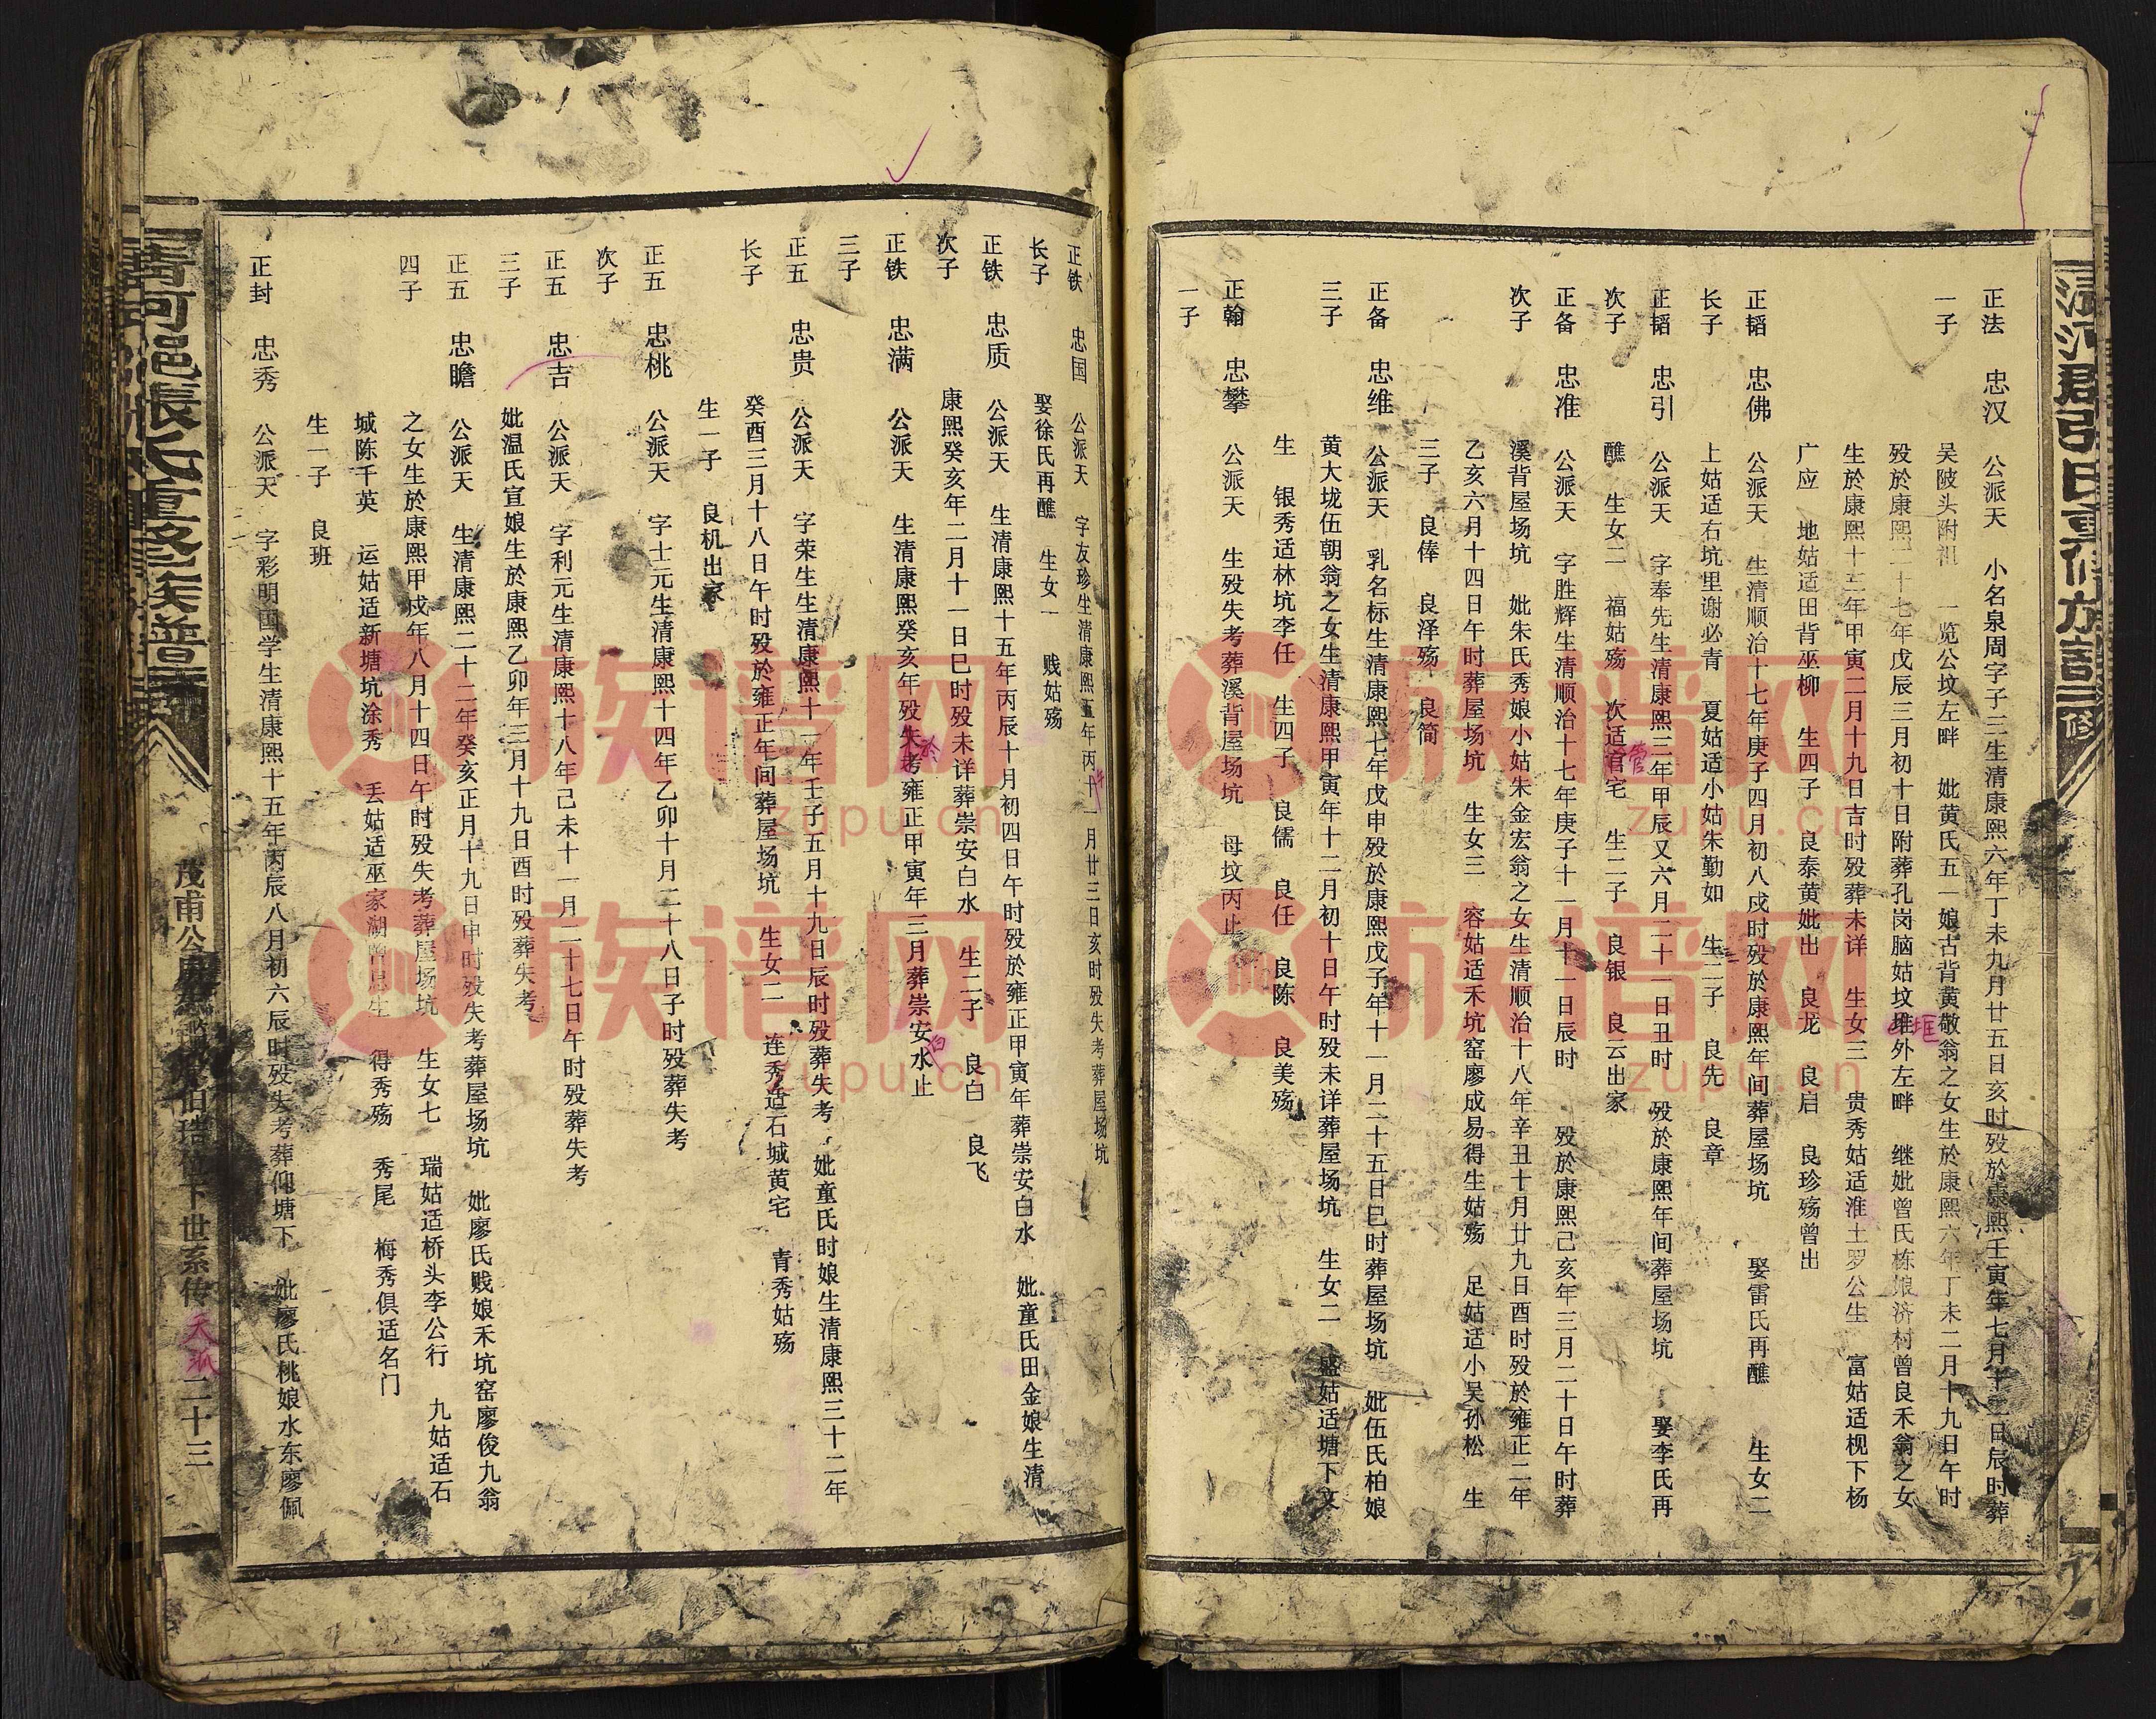 正法 忠汉 公派天 小名泉周字子三生清康熙六年丁未九月廿五日亥时殁於康熙壬寅年七月十二日辰时葬
一子 吴陂头附祖 一览公坟左畔 妣黄氏五一娘古背黄敬翁之女生於康熙六年丁未二月十九日午时
殁於康熙二十七年戊辰三月初十日附葬孔岗脑姑坟堆外左畔 继妣曾氏栋娘济村曾良禾翁之女
生於康熙十三年甲寅二月十九日吉时殁葬未详 生女三 贵秀姑适淮土罗公生 富姑适枧下杨
广应 地姑适田背巫柳 生四子 良泰黄妣出 良龙 良启 良珍殇曾出
正韬 忠佛 公派天 生清顺治十七年庚子四月初八戌时殁於康熙年间葬屋场坑 娶雷氏再醮 生女二
长子 上姑适右坑里谢必青 夏姑适小姑朱勤如 生二子 良先 良章
正韬 忠引 公派天 字奉先生清康熙三年甲辰又六月二十一日丑时 殁於康熙年间葬屋场坑 娶李氏再
次子 醮 生女二 福姑殇 次适官宅 生二子 良银 良云出家
正备 忠准 公派天 字胜辉生清顺治十七年庚子十一月十一日辰时 殁於康熙己亥年三月二十日午时葬
次子 溪背屋场坑 妣朱氏秀娘小姑朱金宏翁之女生清顺治十八年辛丑十月廿九日酉时殁於雍正二年
乙亥六月十四日午时葬屋场坑 生女三 容姑适禾坑窑廖成易得生姑殇 足姑适小吴孙松 生
三子 良俸 良泽殇 良简
正备 忠维 公派天 乳名标生清康熙七年戊申殁於康熙戊子年十一月二十五日巳时葬屋场坑 妣伍氏柏娘
三子 黄大垅伍朝翁之女生清康熙甲寅年十二月初十日午时殁未详葬屋场坑 生女二 盛姑适塘下文
生 银秀适林坑李任 生四子 良儒 良任 良陈 良美殇
正翰 忠攀 公派天 生殁失考葬溪背屋场坑 母坟丙止
一子
正铁 忠国 公派天 字友珍生清康熙五年丙十一月廿三日亥时殁失考葬屋场坑
长子 娶徐氏再醮 生女一 贱姑殇
正铁 忠质 公派天 生清康熙十五年丙辰十月初四日午时殁於雍正甲寅年葬崇安白水 妣童氏田金娘生清
次子 康熙癸亥年二月十一日巳时殁未详葬崇安白水 生二子 良白 良飞
正铁 忠满 公派天 生清康熙癸亥年殁失考雍正甲寅年三月葬崇安水止
三子
正五 忠贵 公派天 字荣生生清康熙十一年壬子五月十九日辰时殁葬失考 妣童氏时娘生清康熙三十二年
长子 癸酉三月十八日午时殁於雍正年间葬屋场坑 生女二 连秀适石城黄宅 青秀姑殇
生一子 良机出家
正五 忠桃 公派天 字士元生清康熙十四年乙卯十月二十八日子时殁葬失考
次子
正五 忠吉 公派天 字利元生清康熙十八年己未十一月二十七日午时殁葬失考
三子 妣温氏宣娘生於康熙乙卯年三月十九日酉时殁葬失考
正五 忠瞻 公派天 生清康熙二十二年癸亥正月十九日申时殁失考葬屋场坑 妣廖氏贱娘禾坑窑廖俊九翁
四子 之女生於康熙甲戌年八月十四日午时殁失考葬屋场坑 生女七 瑞姑适桥头李公行 九姑适石
城陈千英 运姑适新塘坑涂秀 丢姑适巫家湖曾思生 得秀殇 秀尾 梅秀俱适名门
生一子 良班
正封 忠秀 公派天 字彩明国学生清康熙十五年丙辰八月初六辰时殁失考葬仰塘下 妣廖氏桃娘水东廖佩
二十三
族谱网
zupu.cn
族谱网
zupu.cn
族谱网
zupu.cn
族谱网
zupu.cn